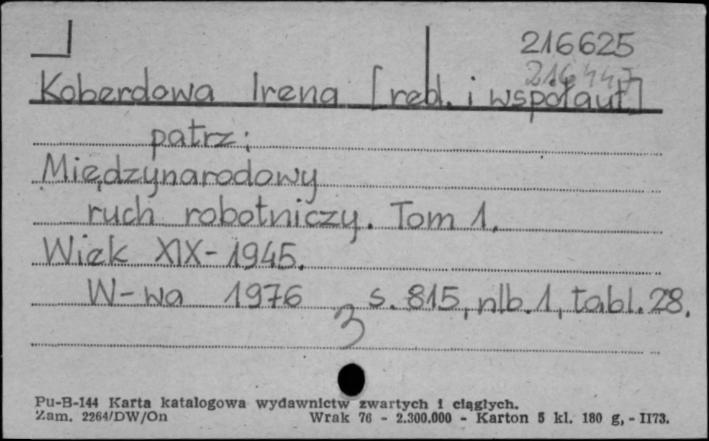 216625
Koberdowa Irena [red. i współaut]
patrz:
Międzynarodowy
ruch robotniczy. Tom 1.
Wiek XIX-1945.
W-wa 1976 s. 815, nlb. 1, tabl. 28.
3
Pu-B-144 Karta katalogowa wydawnictw zwartych i ciągłych.
Zam. 2264/DW/On Wrak 76 - 2.300.000 - Karton 5 kl. 180 g, - II73.